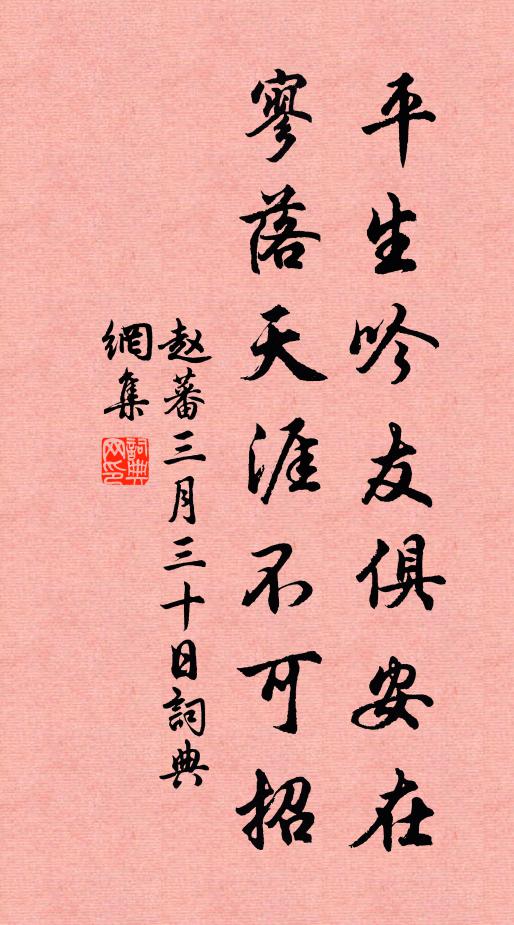 平生吟友俱安在
寥落天涯不可招
赵蕃三月三十日詞典
網集
詞典网印